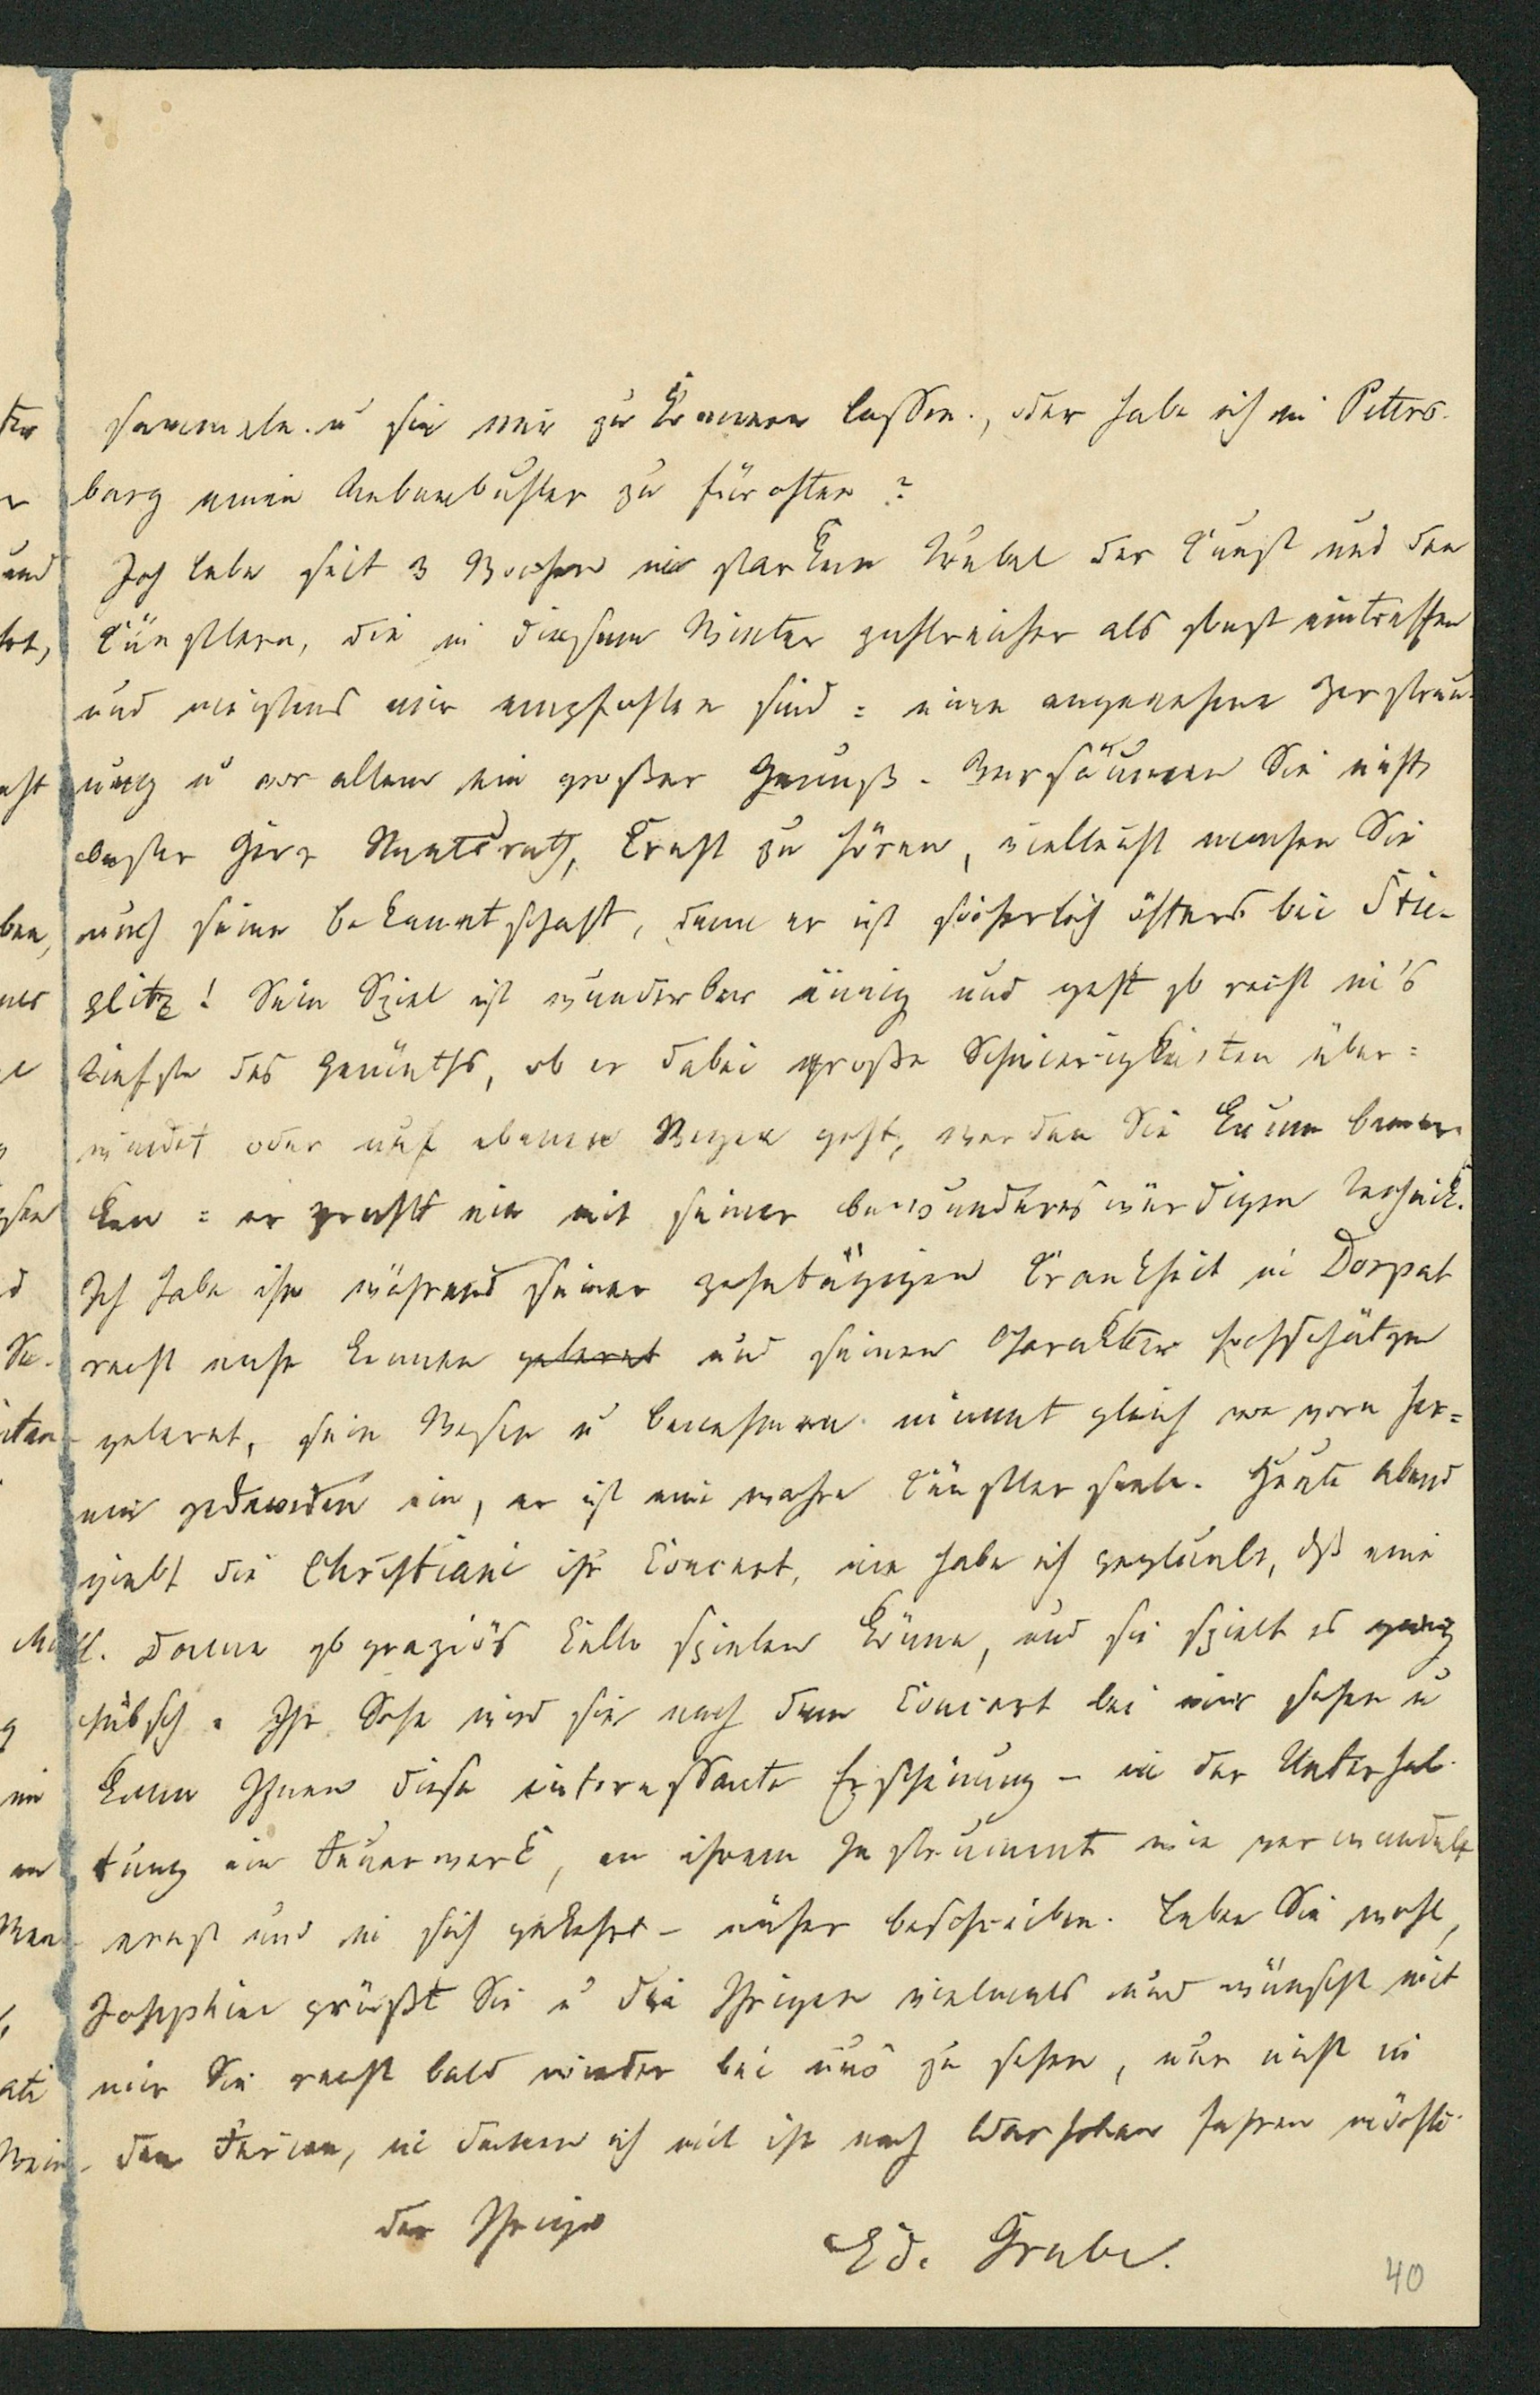 sammeln u sie mir zukommen lassen, oder habe ich in Peters-
burg einen Nebenbuhler zu fürchten?
Ich lebe seit 3 Wochen im starken Trubel der Kunst und den
Künstlern, die in diesem Winter zahlreicher als sonst eintreffen
und meistens mir empfohlen sind: eine angenehme Zerstreu-
ung u vor allem ein großer Genuß. Versäumen Sie nicht
bester Herr Staatsrath, Ernst zu hören, vielleicht machen Sie
auch seine Bekanntschaft, denn er ist sicherlich öfters bei Stie-
glitz! Sein Spiel ist wunderbar innig und geht so recht in's
Tiefste des Gemüths, ob er dabei große Schwierigkeiten über=
windet oder auf ebenen Wegen geht, werden Sie kaum bemer-
ken: er prahlt nie mit seiner bewundernswürdigen Technik.
Ich habe ihn während seiner zehntägigen Krankheit in Dorpat
recht nahe kennen gelernt und seinen Charakter hochschätzen
gelernt, sein Wesen u Benehmen nimmt gleich von vorn her=
ein jedweden ein, er ist eine wahre Künstlerseele. Heute Abend
giebt die Christiani ihr Concert, nie habe ich geglaubt, dß eine
Dame so graziös Cello spielen könne, und sie spielt es ganz
hübsch. Ihr Sohn wird sie nach dem Concert bei mir sehen u
kann Ihnen diese interessante Erscheinung – in der Unterhal-
tung ein Feuerwerk, an ihrem Instrument wie verwandelt
ernst und in sich gekehrt – näher beschreiben. Leben Sie wohl,
Josephine grüßt Sie u die Ihrigen vielmals und wünscht mit
mir Sie recht bald wieder bei uns zu sehen, nur nicht in
den Ferien, in denen ich mit ihr nach Warschau fahren möchte.
der Ihrige
Ed. Grube.
40